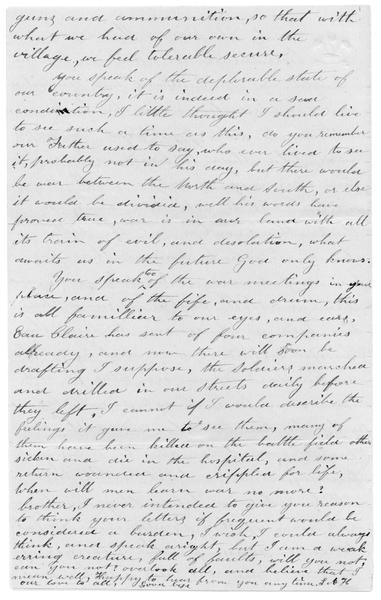 guns and ammunition, so that with
what we had of our own in the
village, we feel tolerable secure.
You speak of the deplorable state of
our country, it is indeed in a sad
condition, I little thought I should live
to see such a time as this, do you remember
our Father used to say, who ever lived to see
it, probably not in his day, but there would
be war between the North and South, or else
it would be divided, well his words have
proved true, war is in our land with all
its train of evil, and desolation, what
awaits us in the future God only knows.
You speak too of the war meetings in your
place, and of the fife, and drum, this
is all familliar to our eyes, and ears,
Eau Claire has sent of four companies
allready, and now there will soon be
drafting I suppose, the soldiers marched
and drilled in our streets daily before
they left, I cannot if I would describe the
feelings it gave me to see them, many of
them have been killed on the battle field others
sicken and die in the hospital, and some
return wounded and crippled for life,
when will men learn war no more?
brother, I never intended to give you reason
to think your letters if frequent would be
considered a burden, I wish I could always
think, and speak aright, but I am a weak
erring creature, full of faults, will you not,
can you not? overlook all, and believe that I
mean well, happy to hear from you any time,
our love to all,